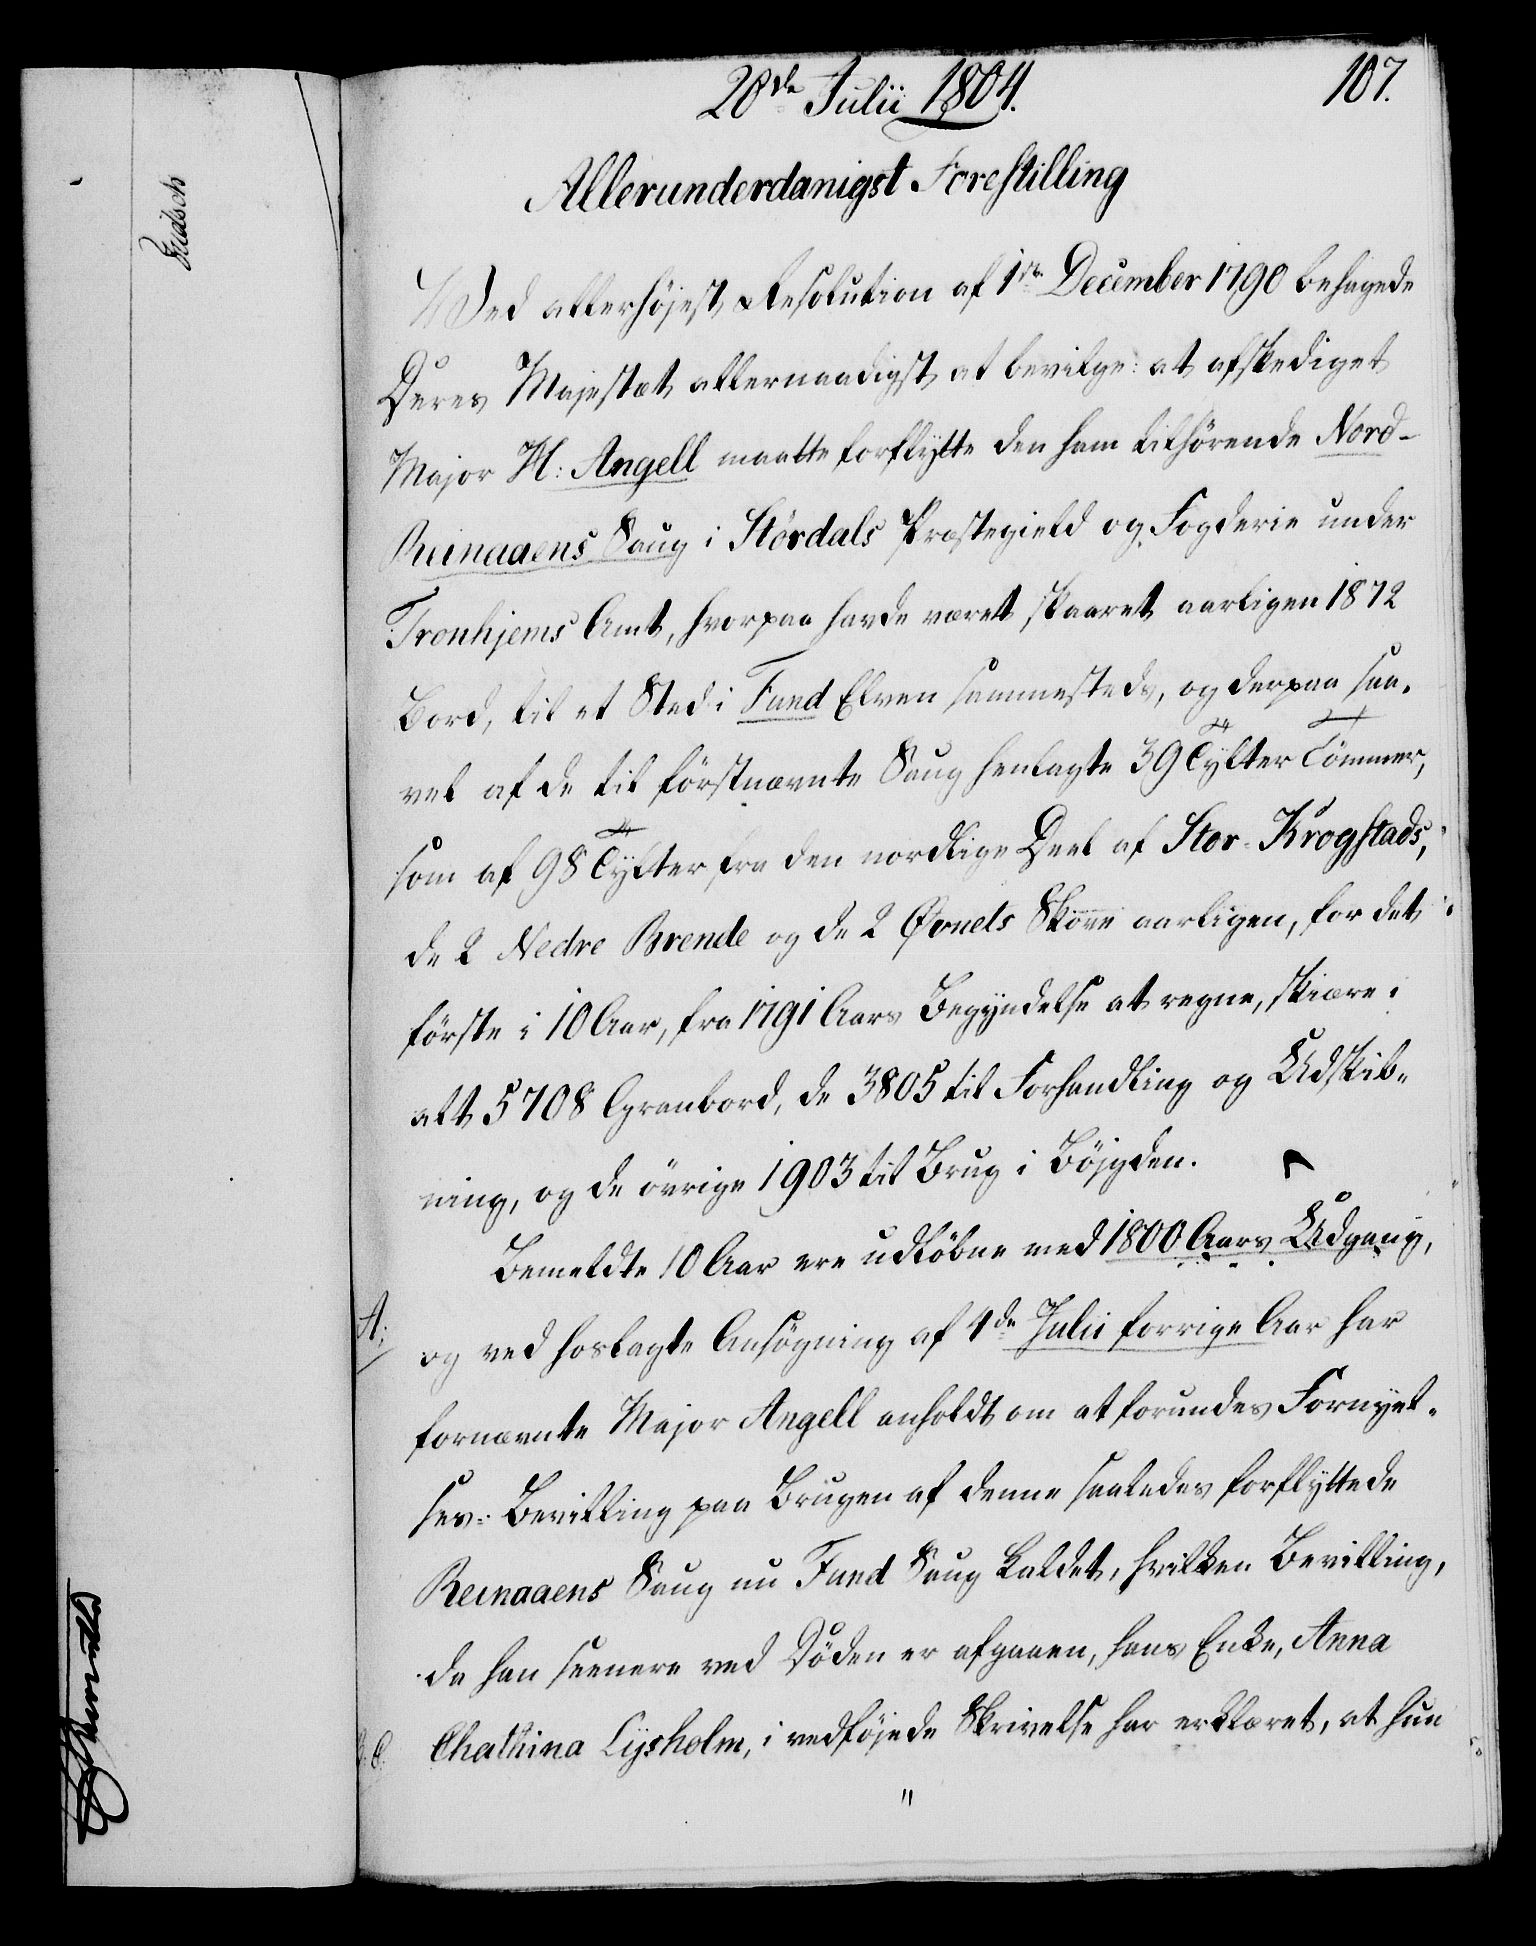 28de Julii 1804.
107.
Allerunderdanigst Forestilling
Ved allerhøjest Resolution af 1ste December 1790 behagede
Deres Majestæt allernaadigst at bevilge: at afskediget
Major H: Angell maatte forflytte den ham tilhørende Nord-
Reinaaens Saug i Størdals Præstegield og Fogderie under
Tronhjems Amt, hvorpaa havde været skaaret aarligen 1872
Bord, til et Sted i Fund Elven sammesteds, og derpaa saa-
vel af de til førstnævnte Saug henlagte 39 Tylter Tømmer,
som af 98 Tylter fra den nordlige Deel af Stor-Krogstads,
de 2 Nedre Brende og de 2 Øvnets Skove aarligen, for det
første i 10 Aar, fra 1791 Aars Begyndelse at regne, skiære i
alt 5708 Granbord, de 3805 til Forhandling og Udskib-
ning, og de øvrige 1903 til Brug i Bøjgden.
Bemeldte 10 Aar ere udløbne med 1800 Aars Udgang,
A:
og ved hoslagte Ansøgning af 4de Julii forrige Aar har
fornævnte Major Angell anholdt om at forundes Fornyel-
ses-Bevilling paa Brugen af denne saaledes forflyttede
Reinaaens Saug nu Fund Saug kaldet, hvilken Bevilling,
da han seenere ved Døden er afgaaen, hans Enke, Anna
Chathrina Lysholm, i vedføjede Skrivelse har erklæret, at hun